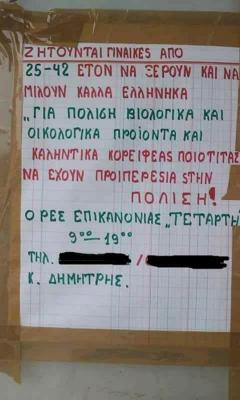 ΖΗΤΟΥΝΤΑΙ ΓΙΝΑΙΚΕΣ ΑΠΟ
25-42 ΕΤΟΝ ΝΑ ΞΕΡΟΥΝ ΚΑΙ ΝΑ
ΜΙΛΟΥΝ ΚΑΛΛΑ ΕΛΛΗΝΗΚΑ
„ΓΙΑ ΠΟΛΙΣΗ ΒΙΟΛΟΓΙΚΑ ΚΑΙ
ΟΙΚΟΛΟΓΙΚΑ ΠΡΟΪΟΝΤΑ ΚΑΙ
ΚΑΛΗΝΤΙΚΑ ΚΟΡΕΙΦΕΑΣ ΠΟΙΟΤΙΤΑΣ
ΝΑ ΕΧΟΥΝ ΠΡΟΙΠΕΡΕSΙΑ SΤΗΝ
ΠΟΛΙΣΗ!
Ο ΡΕΣ ΕΠΙΚΑΝΟΝΙΑΣ „ΤΕΤΑΡΤΗ"
9⁰⁰—19⁰⁰
ΤΗΛ. /
Κ. ΔΗΜΗΤΡΗΣ.